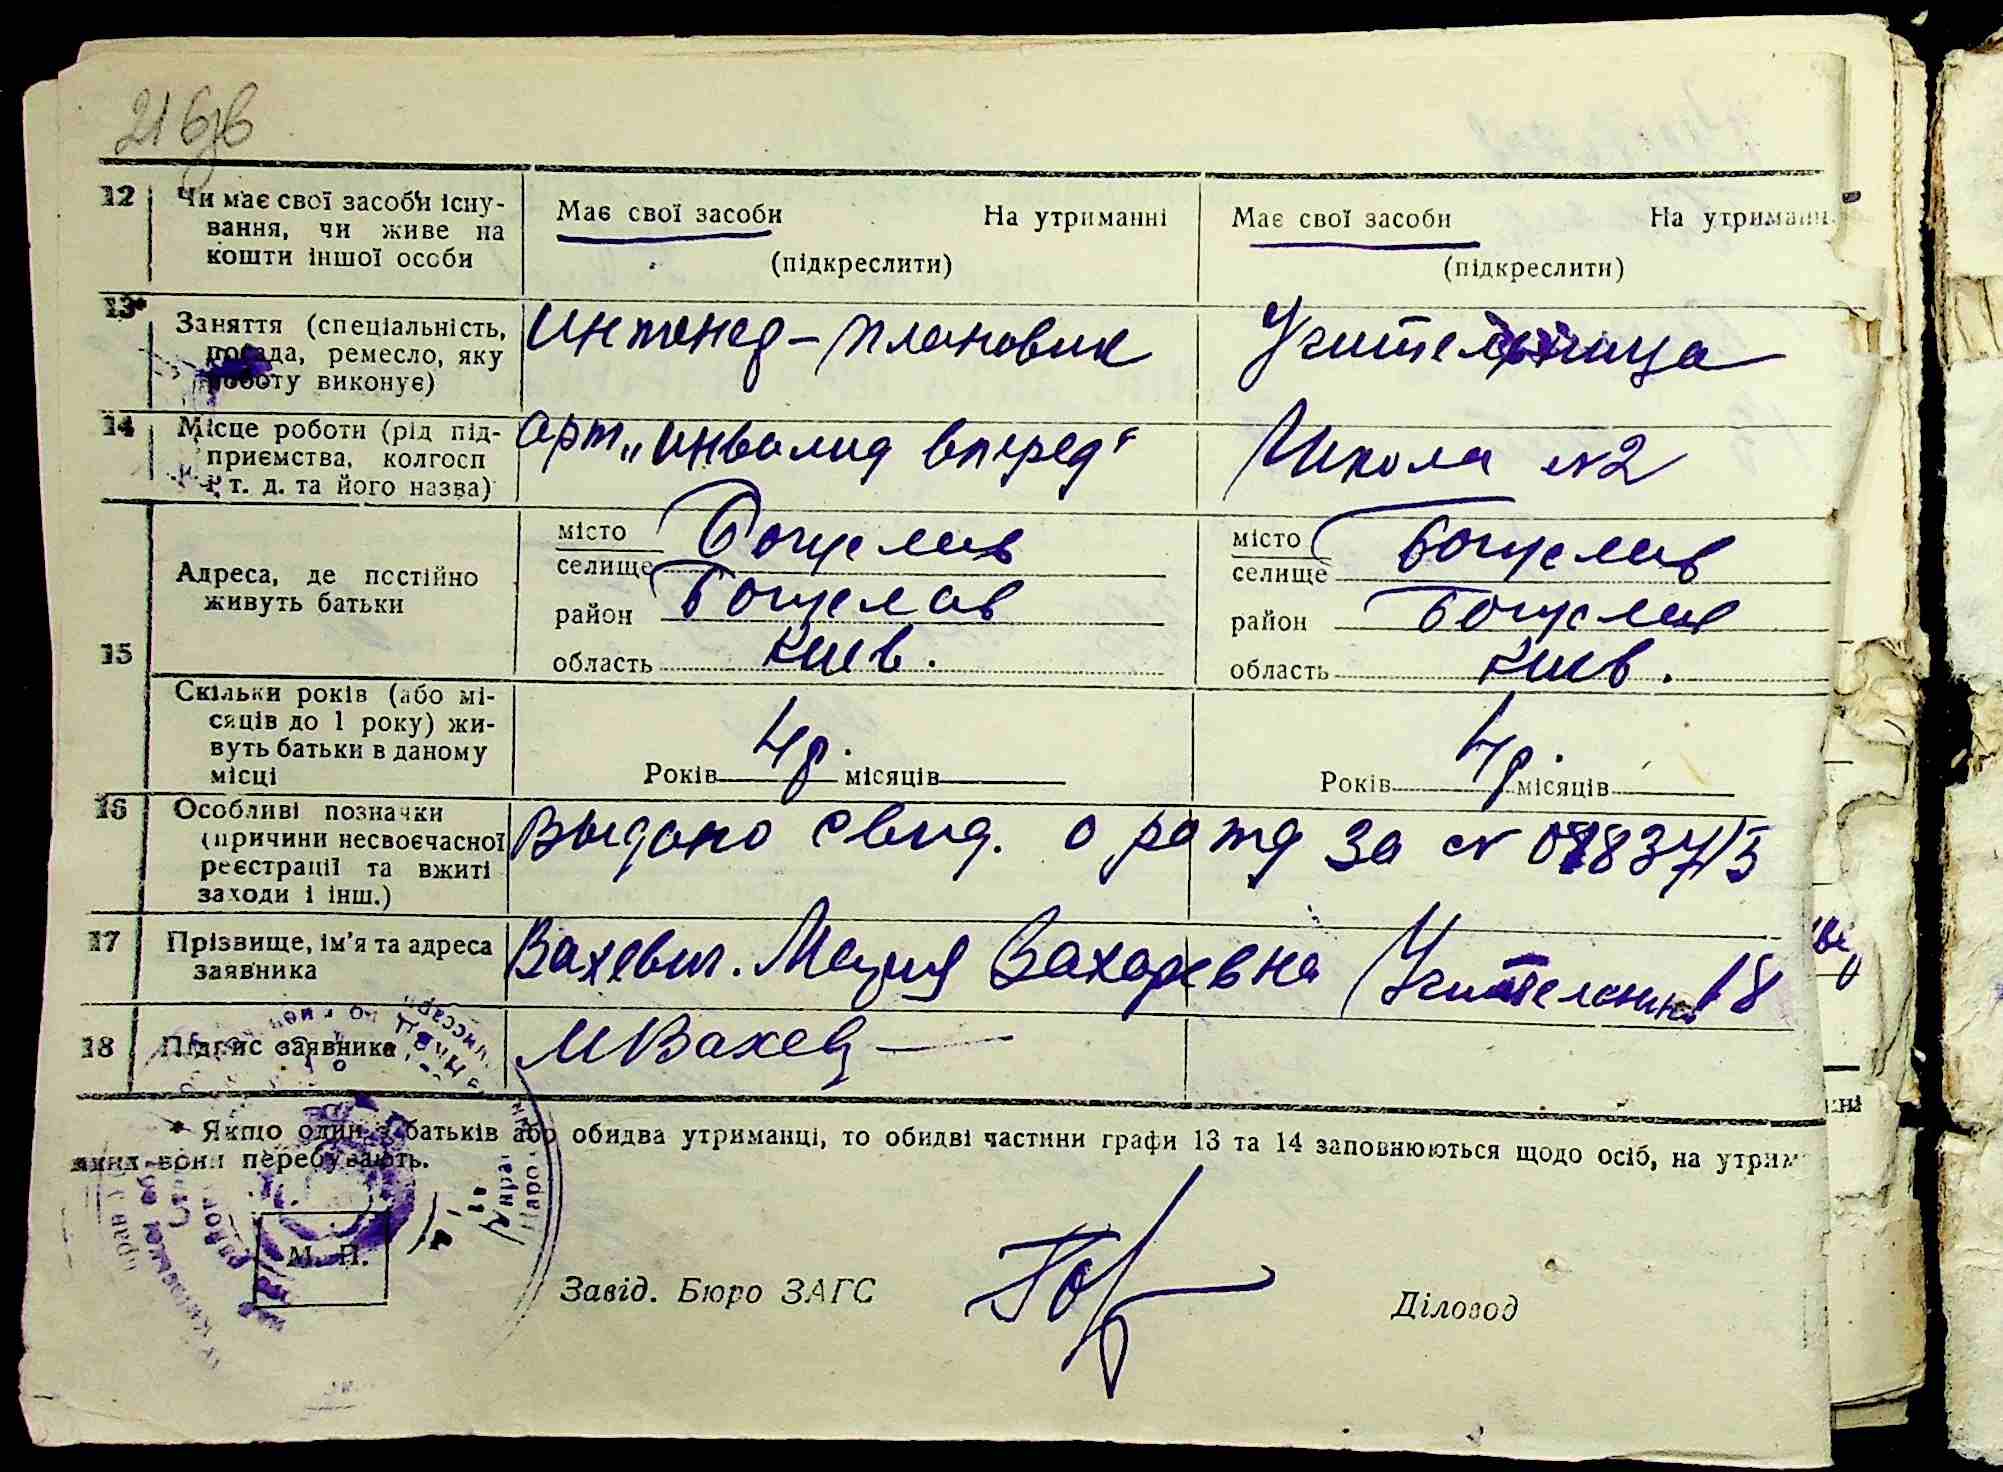 12 Чи має свої засоби існу-
вання, чи живе на
кошти іншої особи
Має свої засоби На утриманні
(підкреслити)
Має свої засоби На утриманн
(підкреслити)
13* Заняття (спеціальність,
посада, ремесло, яку
роботу виконує)
Инженер-плановик
Учительница
14 Місце роботи (рід під-
приємства, колгосп
і т. д. та його назва)
Арт „Инвалид вперед“
Школа №2
15 Адреса, де постійно
живуть батьки
місто Богуслав
селище
район Богуслав
область Киев.
місто Богуслав
селище
район Богуслав
область Киев.
Скільки років (або мі-
сяців до 1 року) жи-
вуть батьки в даному
місці
Років 4 місяців
Років 4 місяців
16 Особливі позначки
(причини несвоєчасної
реєстрації та вжиті
заходи і інш.)
Выдано свид. о рожд за №
17 Прізвище, ім'я та адреса
заявника
Мария Захаровна
18 Підпис заявника
* Якщо один з батьків або обидва утриманці, то обидві частини графи 13 та 14 заповнюються щодо осіб, на утрим
яких вони перебувають.
М. П.
Завід. Бюро ЗАГС
Діловод